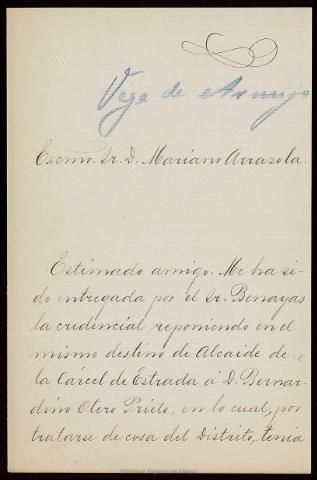 Vega de Armijo
Excmo. Sr. D. Mariano Arrazola.
Estimado amigo. Me ha si-
do entregada por el Sr. Benayas
la credencial reponiendo en el
mismo destino de Alcaide de
la Cárcel de Estrada á D. Bernar-
dino Otero Prieto, en lo cual, por
tratarse de cosa del Distrito, tenia
Biblioteca Regional de Madrid